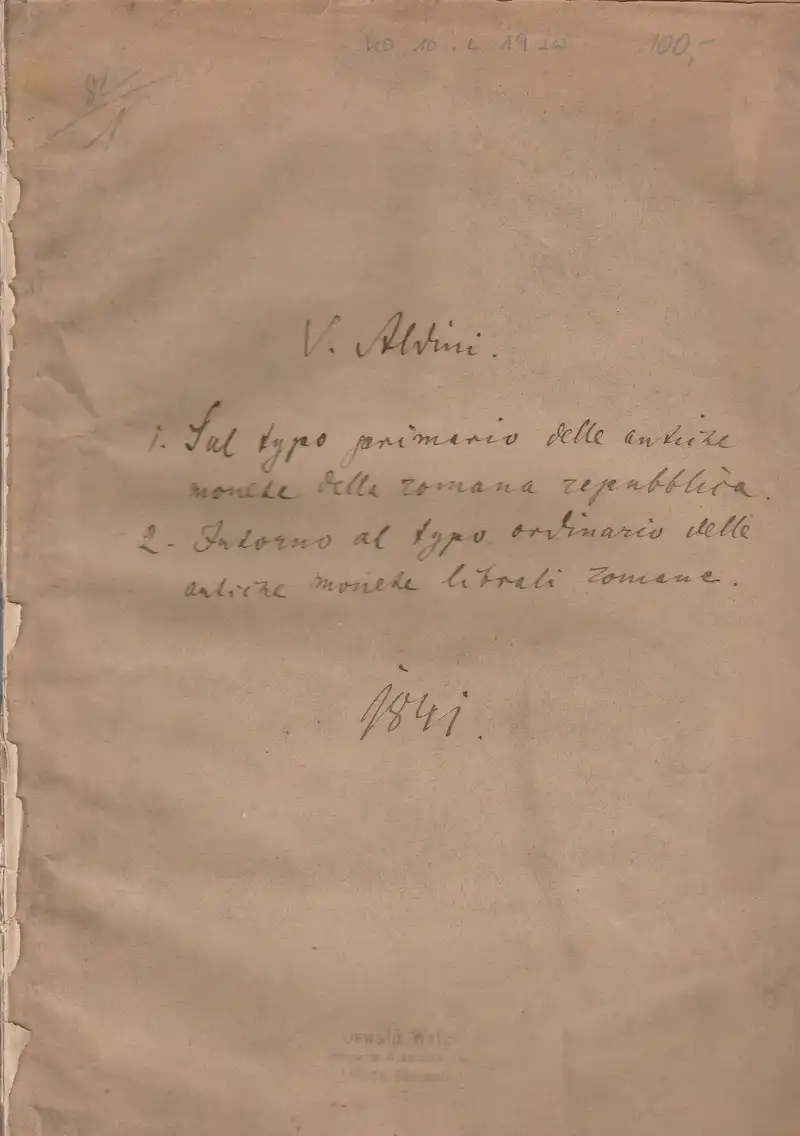 100,-
V. Aldini.
1. Sul typo primario delle antiche
monete della romana repubblica.
2. Intorno al typo ordinario delle
antiche monete librali romane.
1841.
Oswald